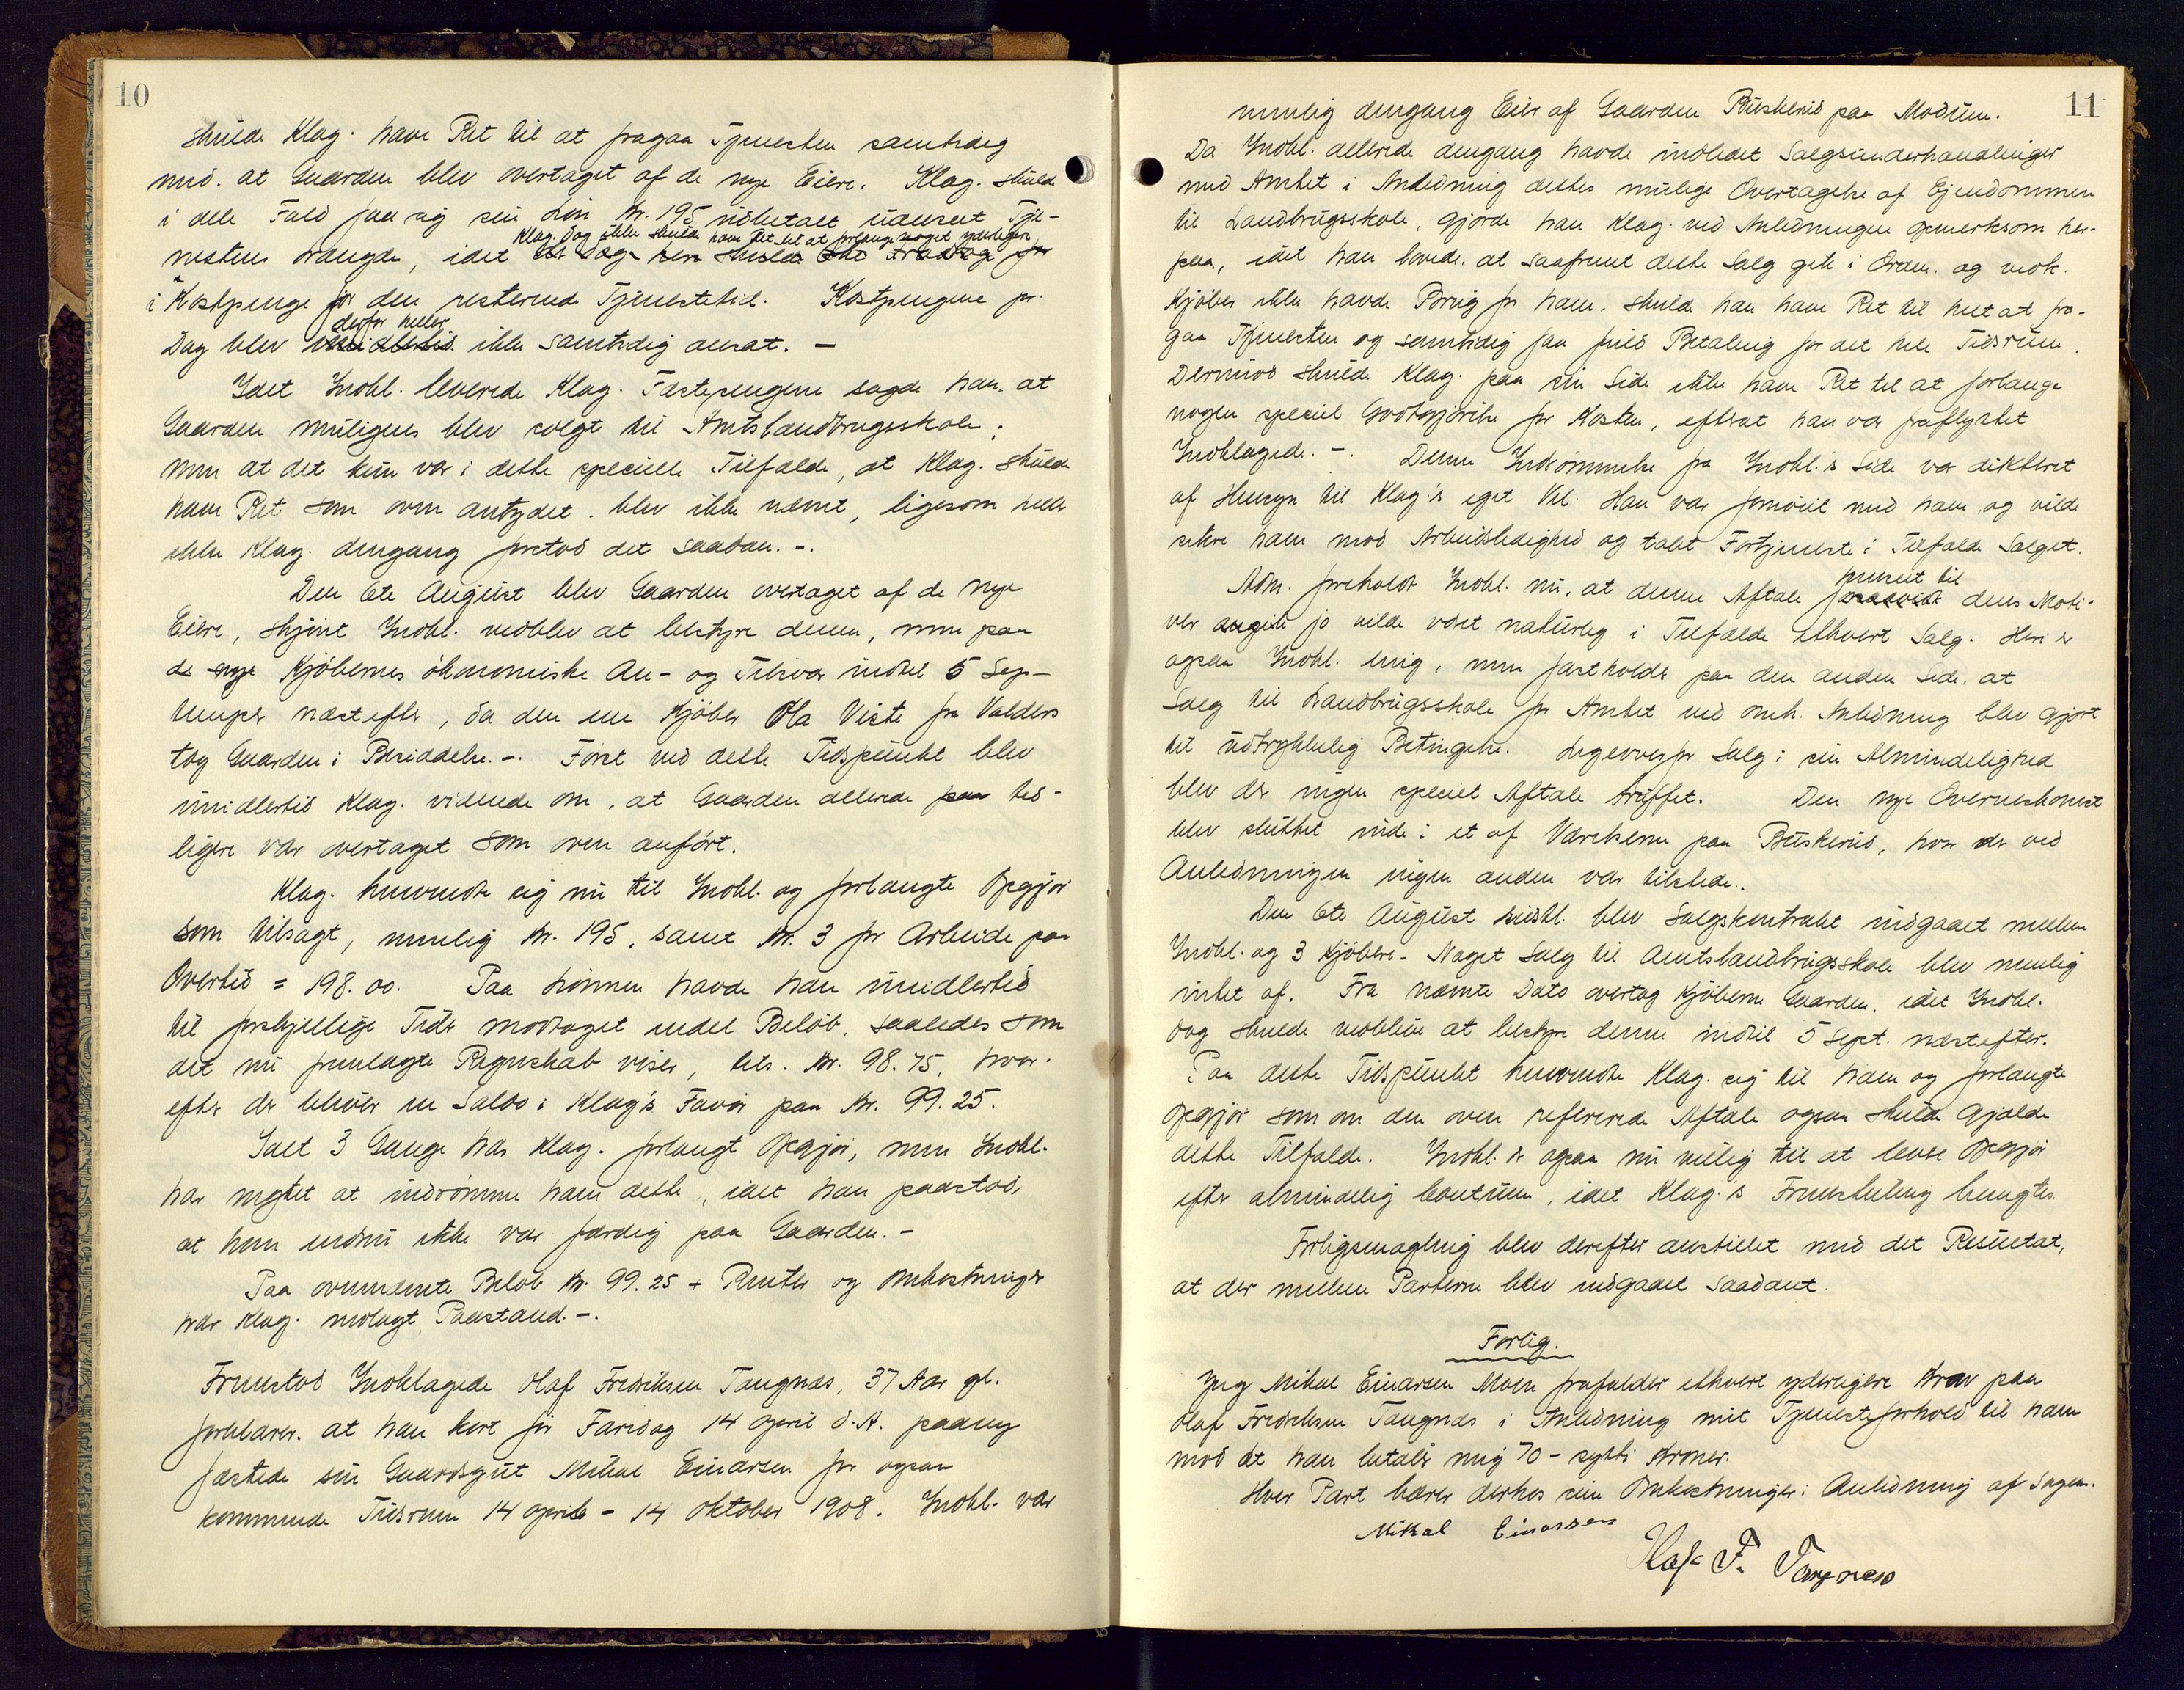 10
skulde Klag. have Ret til at fragaa Tjenesten samtidig
med. at Gaarden blev overtaget af de nye Eiere. Klag. skulde
i dette Fald faa sig sin Løn Kr. 195 udbetalt uanseet Tje-
Klag. dog ikke skulde have Ret til at forlange noget yderligere
nestens Længde, idet der dog her skulde ske Fradrag for
i Kostpenge for den resterende Tjenestetid. Kostpengene pr.
derfor heller
Dag blev imidlertid ikke samtidig ansat. —
Idet Indkl. leverede Klag. Fæstepengene sagde han, at
Gaarden muligens blev solgt til Amtslandbrugsskole;
men at det kun var i dette specielle Tilfælde, at Klag. skulde
have Ret som oven antydet, blev ikke nævnt, ligesom heller
ikke Klag. dengang forstod det saadan. -.
Den 6te August blev Gaarden overtaget af de nye
Eiere, skjønt Indkl. vedblev at bestyre denne, men paa
de nye Kjøbernes økonomiske An- og Tilsvar indtil 5 Sep-
tember næstefter, da den ene Kjøber Ola Viste fra Valders
tog Gaarden i Besiddelse. -. Først ved dette Tidspunkt blev
imidlertid Klag. vidende om, at Gaarden allerede paa tid-
ligere var overtaget som oven anført.
Klag. henvendte sig nu til Indkl. og forlangte Opgjør
som tilsagt, nemlig Kr. 195, samt Kr. 3 for Arbeide paa
Overtid = 198.00. Paa Lønnen havde han imidlertid
til forskjellige Tider modtaget endel Beløb, saaledes som
det nu fremlagte Regnskab viser, tils. Kr. 98.75, hvor-
efter der bliver en Saldo i Klag's Favør paa Kr. 99.25.
Ialt 3 Gange har Klag. forlangt Opgjør, men Indkl.
har negtet at indrømme ham dette, idet han paastod,
at han endnu ikke var færdig paa Gaarden. -
Paa ovennævnte Beløb Kr. 99.25 + Renter og Omkostninger
har Klag. nedlagt Paastand. -.
Fremstod Indklagede Olaf Fredriksen Tangnæs, 37 Aar gl.
forklarer, at han kort før Faredag 14 april d. A. paany
fæstede sin Gaardsgut Mikal Einarsen for ogsaa
kommende Tidsrum 14 april - 14 Oktober 1908. Indkl. var
11
nemlig dengang Eier af Gaarden Buskerud paa Modum.
Da Indkl. allerede dengang havde indledet Salgsunderhandlinger
med Amtet i Anledning dettes mulige Overtagelse af Ejendommen
til Landbrugsskole, gjorde han Klag. ved Anledningen opmerksom her-
paa, idet han lovede, at saafremt dette Salg gik i Orden, og vedk.
Kjøber ikke havde Brug for ham, skulde han have Ret til helt at fra-
gaa Tjenesten og samtidig faa fuld Betaling for det hele Tidsrum.
Derimod skulde Klag. paa sin Side ikke have Ret til at forlange
nogen speciel Godtgjørelse for Kosten, efterat han var fraflyttet
Indklagede. -. Denne Indrømmelse fra Indkl.'s Side var dikteret
af Hensyn til Klag's eget Vel. Han var fornøiet med ham, og vilde
sikre ham mod Arbeidsledighed og tabt Fortjeneste i Tilfælde Salget.
Adm. foreholdt Indkl. nu, at denne Aftale
henseet til
dens Moti-
ver angik jo vilde været naturlig i Tilfælde ethvert Salg. Heri er
ogsaa Indkl. enig, men fastholder paa den anden Side, at
Salg til Landbrugsskole for Amtet ved omh. Anledning blev gjort
til udtrykkelig Betingelse. Ligeoverfor Salg i sin Almindelighed
blev der ingen speciel Aftale truffet. Den nye Overenskomst
blev sluttet inde i et af Værelserne paa Buskerud, hvor der ved
Anledningen ingen anden var tilstede.
Den 6te August sidstl. blev Salgskontrakt indgaaet mellem
Indkl. og 3 Kjøbere. Noget Salg til Amtslandbrugsskole blev nemlig
intet af. Fra nævnte Dato overtog Kjøberne Gaarden, idet Indkl.
dog skulde vedblive at bestyre denne indtil 5 Sept. næstefter.
Paa dette Tidspunkt henvendte Klag. sig til ham og forlangte
Opgjør som om den oven refererede Aftale ogsaa skulde gjælde
dette Tilfælde. Indkl. er ogsaa nu villig til at levere Opgjør
efter almindelig Coutume, idet Klag.'s Fremstilling benegtes.
Forligsmægling blev derefter anstillet med det Resultat,
at der mellem Parterne blev indgaaet saadant
Forlig.
Jeg Mikal Einarsen Moen frafalder ethvert yderligere Krav paa
Olaf Fredriksen Tangnæs i Anledning mit Tjenesteforhold til ham
mod at han betaler mig 70 - sytti Kroner.
Hver Part bærer derhos sine Omkostninger i Anledning af Sagen.
Mikal Einarsen
Olaf F. Tangnæs